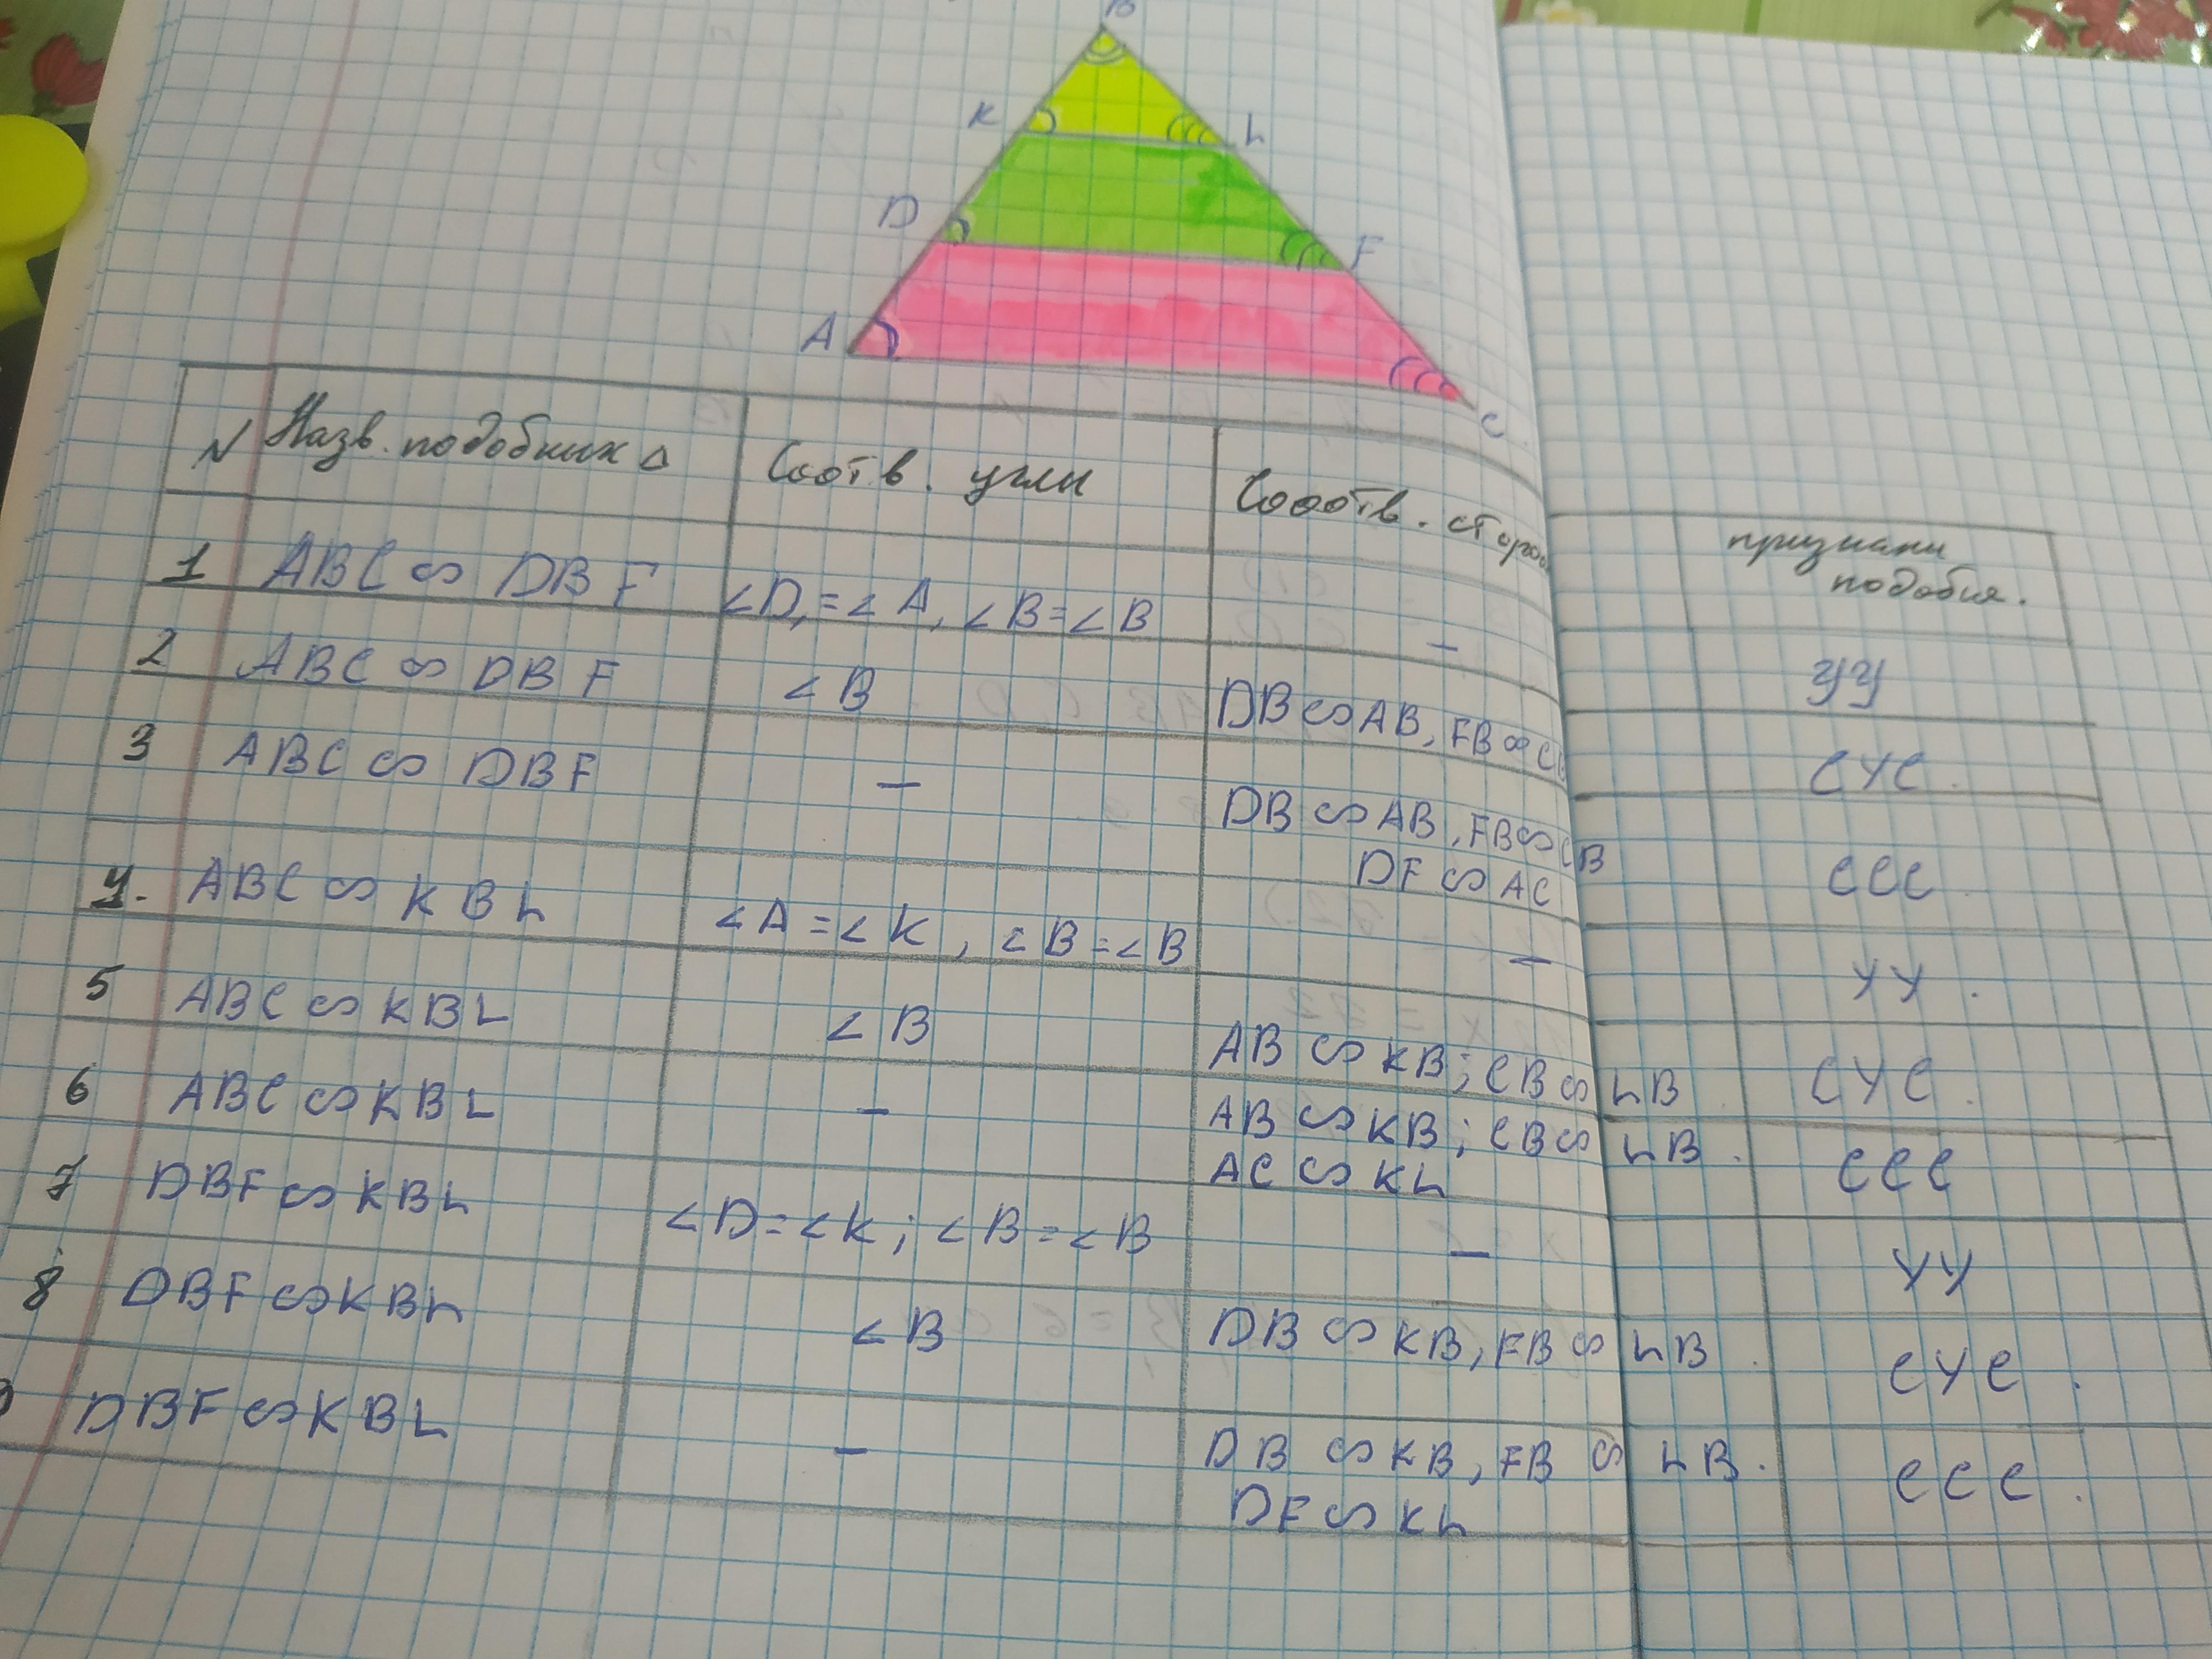 B
K L
D F
A C
N Назв. подобных Δ Соотв. углы Сооотв. сторо признаки
подобия.
1 ABC ∽ DBF ∠D,=∠A, ∠B=∠B — УУ
2 ABC ∽ DBF ∠B DB∽AB, FB∽CB СУС.
3 ABC ∽ DBF — DB∽AB, FB∽CB ССС.
DF∽AC
4. ABC ∽ KBL ∠A=∠K, ∠B=∠B — УУ.
5 ABC∽KBL ∠B AB∽KB; CB∽LB СУС.
6 ABC∽KBL — AB∽KB; CB∽LB. ССС
AC∽KL
7 DBF∽KBL ∠D=∠K; ∠B=∠B — УУ
8 DBF∽KBL ∠B DB∽KB, FB∽LB. СУС.
DBF∽KBL — DB∽KB, FB∽LB. ССС.
DF∽KL